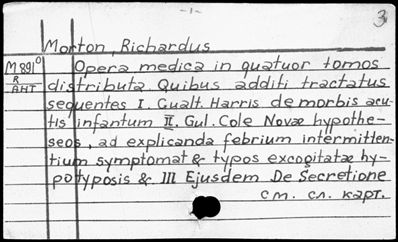 -1-
3
Morton, Richardus
M 891⁰ Opera medica in quatuor tomos
R
АНТ distributa. Quibus additi tractatus
sequentes I. Gualt. Harris de morbis acu-
tis infantum II. Gul. Cole Novæ hypothe-
seos, ad explicanda febrium intermitten-
tium symptomat & typos excogitatæ hy-
potyposis & III Ejusdem De Secretione
см. сл. карт.